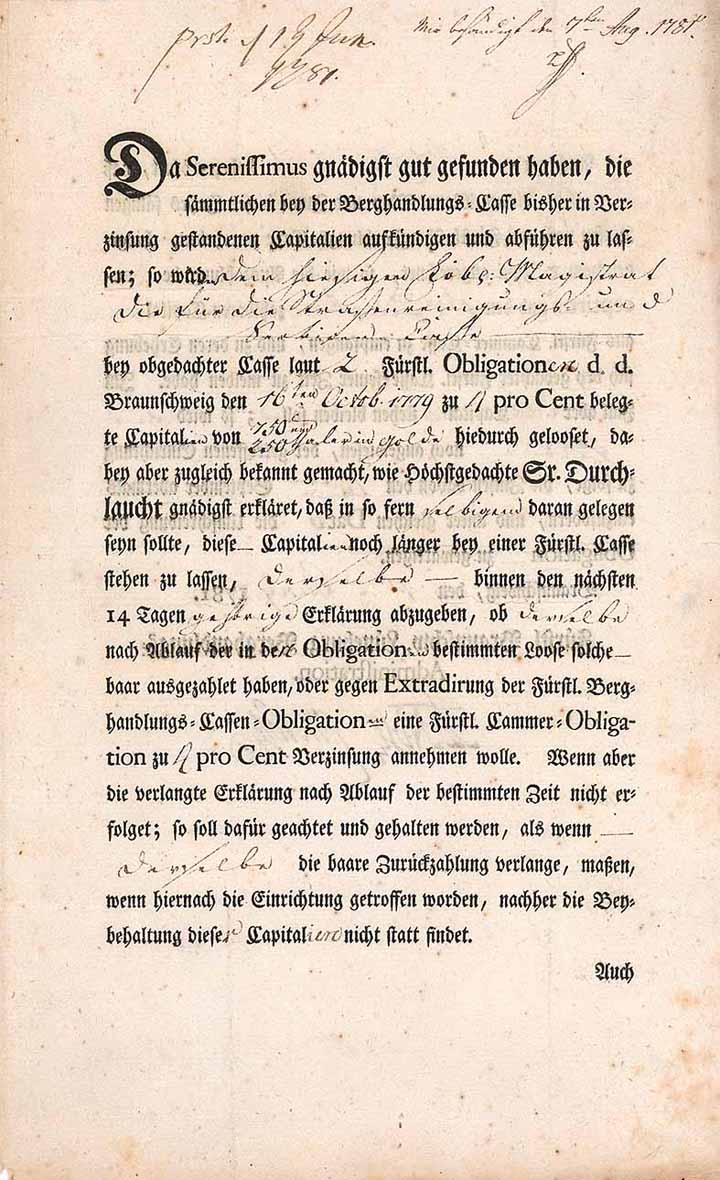 prst. d 19 Jun.
1781.
Mir behändigt den 7ten Aug. 1781.
Da Sereniſſimus gnädigſt gut gefunden haben, die
ſämmtlichen bey der Berghandlungs-Caſſe bisher in Ver-
zinſung geſtandenen Capitalien aufkündigen und abführen zu laſ-
ſen; ſo wird dem hieſigen Löbl: Magiſtrat
die für die Straſſenreinigungs- und
Caſſe
bey obgedachter Caſſe laut 2 Fürſtl. Obligationen d. d.
Braunſchweig den 16ten Octob. 1779 zu 4 pro Cent beleg-
te Capitalien von 750 und
250 Thaler in Golde hiedurch gelooſet, da-
bey aber zugleich bekannt gemacht, wie Höchſtgedachte Sr. Durch-
laucht gnädigſt erkläret, daß in ſo fern ſelbigem daran gelegen
ſeyn ſollte, dieſe Capitalien noch länger bey einer Fürſtl. Caſſe
ſtehen zu laſſen, derſelbe binnen den nächſten
14 Tagen gehörige Erklärung abzugeben, ob derſelbe
nach Ablauf der in den Obligationen beſtimmten Looſe ſolche
baar ausgezahlet haben, oder gegen Extradirung der Fürſtl. Berg-
handlungs-Caſſen-Obligationen eine Fürſtl. Cammer-Obliga-
tion zu 4 pro Cent Verzinſung annehmen wolle. Wenn aber
die verlangte Erklärung nach Ablauf der beſtimmten Zeit nicht er-
folget; ſo ſoll dafür geachtet und gehalten werden, als wenn
derſelbe die baare Zurückzahlung verlange, maßen,
wenn hiernach die Einrichtung getroffen worden, nachher die Bey-
behaltung dieſer Capitalien nicht ſtatt findet.
Auch